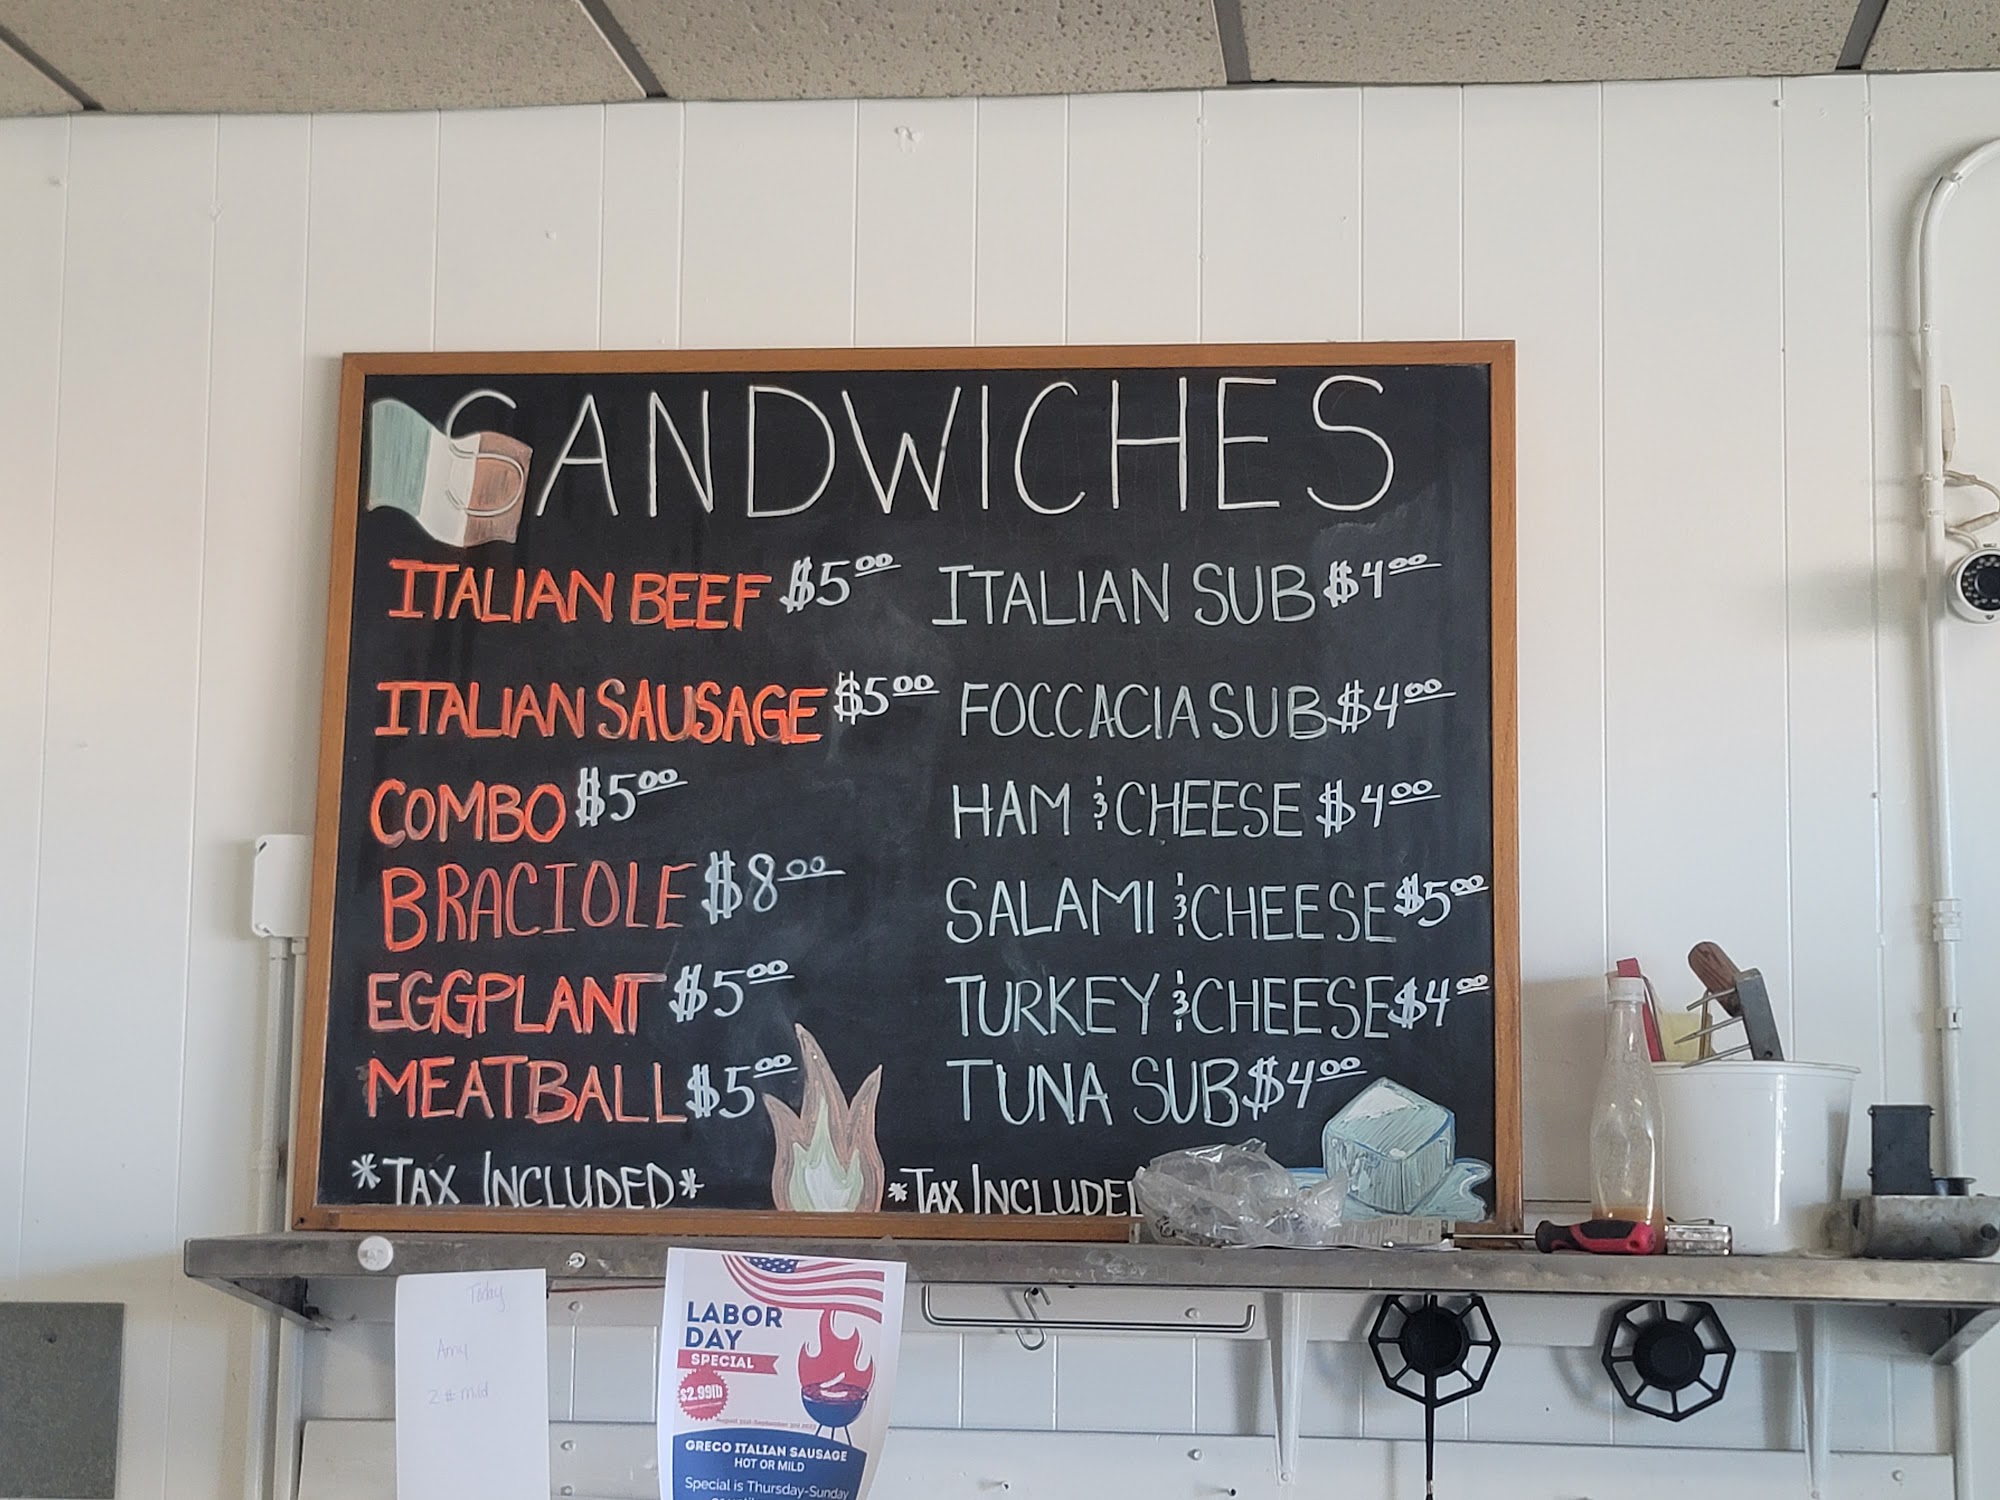 SANDWICHES
ITALIAN BEEF $5.00
ITALIAN SAUSAGE $5.00
COMBO $5.00
BRACIOLE $8.00
EGGPLANT $5.00
MEATBALL $5.00
*TAX INCLUDED*
ITALIAN SUB $4.00
FOCCACIA SUB $4.00
HAM & CHEESE $4.00
SALAMI & CHEESE $5.00
TURKEY & CHEESE $4.00
TUNA SUB $4.00
*TAX INCLUDED
Today
Amy
2# mild
LABOR
DAY
SPECIAL
$2.99lb
August 31st-September 3rd 2023
GRECO ITALIAN SAUSAGE
HOT OR MILD
Special is Thursday-Sunday